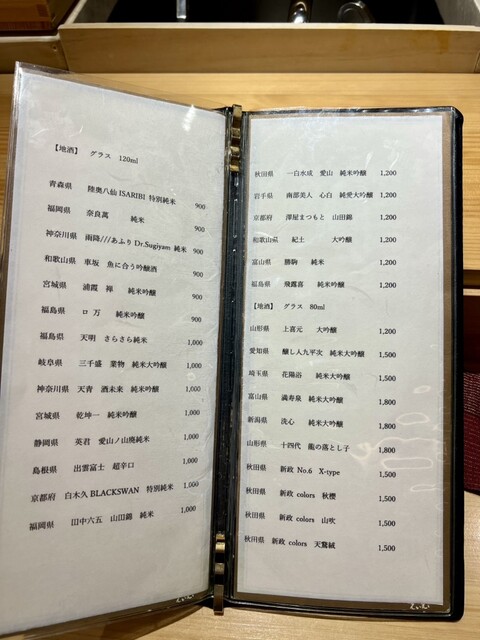 【地酒】 グラス 120ml
青森県 陸奥八仙 ISARIBI 特別純米 900
福岡県 奈良萬 純米 900
神奈川県 雨降///あふり Dr.Sugiyam 純米 900
和歌山県 車坂 魚に合う吟醸酒 900
宮城県 浦霞 禅 純米吟醸 900
福島県 ロ 万 純米吟醸 900
福島県 天明 さらさら純米 1,000
岐阜県 三千盛 業物 純米大吟醸 1,000
神奈川県 天青 酒未来 純米吟醸 1,000
宮城県 乾坤一 純米吟醸 1,000
静岡県 英君 愛山ノ山廃純米 1,000
島根県 出雲富士 超辛口 1,000
京都府 白木久 BLACKSWAN 特別純米 1,000
福岡県 田中六五 山田錦 純米 1,000
秋田県 一白水成 愛山 純米吟醸 1,200
岩手県 南部美人 心白 純愛大吟醸 1,200
京都府 澤屋まつもと 山田錦 1,200
和歌山県 紀土 大吟醸 1,200
富山県 勝駒 純米 1,200
福島県 飛露喜 純米吟醸 1,200
【地酒】 グラス 80ml
山形県 上喜元 大吟醸 1,200
愛知県 醸し人九平次 純米大吟醸 1,500
埼玉県 花陽浴 純米大吟醸 1,500
富山県 満寿泉 純米大吟醸 1,800
新潟県 洗心 純米大吟醸 1,800
山形県 十四代 龍の落とし子 1,800
秋田県 新政 No.6 X-type 1,500
秋田県 新政 colors 秋櫻 1,500
秋田県 新政 colors 山吹 1,500
秋田県 新政 colors 天鵞絨 1,500